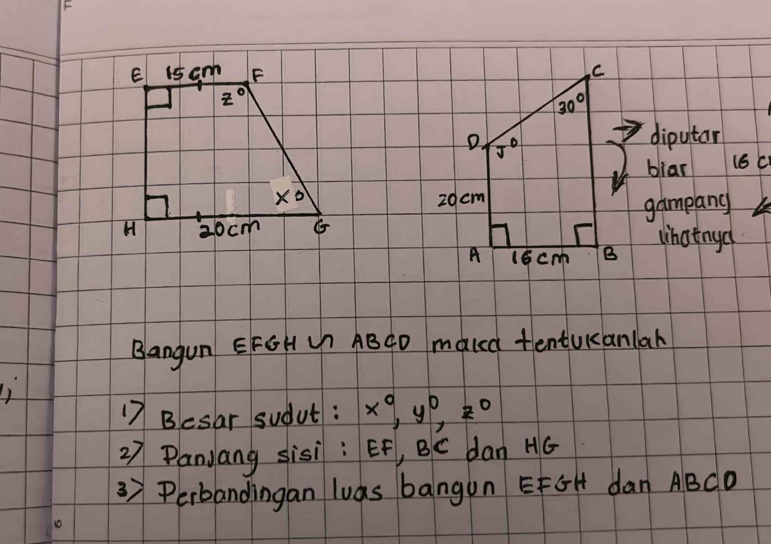 F
E 15 cm F
z°
x°
H 20 cm G
C
30°
D y°
20 cm
A 16 cm B
→ diputar
biar
gampang
lihatnya
16 c
Bangun EFGH ∽ ABCD maka tentukanlah
1) Besar sudut : x°, y°, z°
2) Panjang sisi : EF, BC dan HG
3) Perbandingan luas bangun EFGH dan ABCD